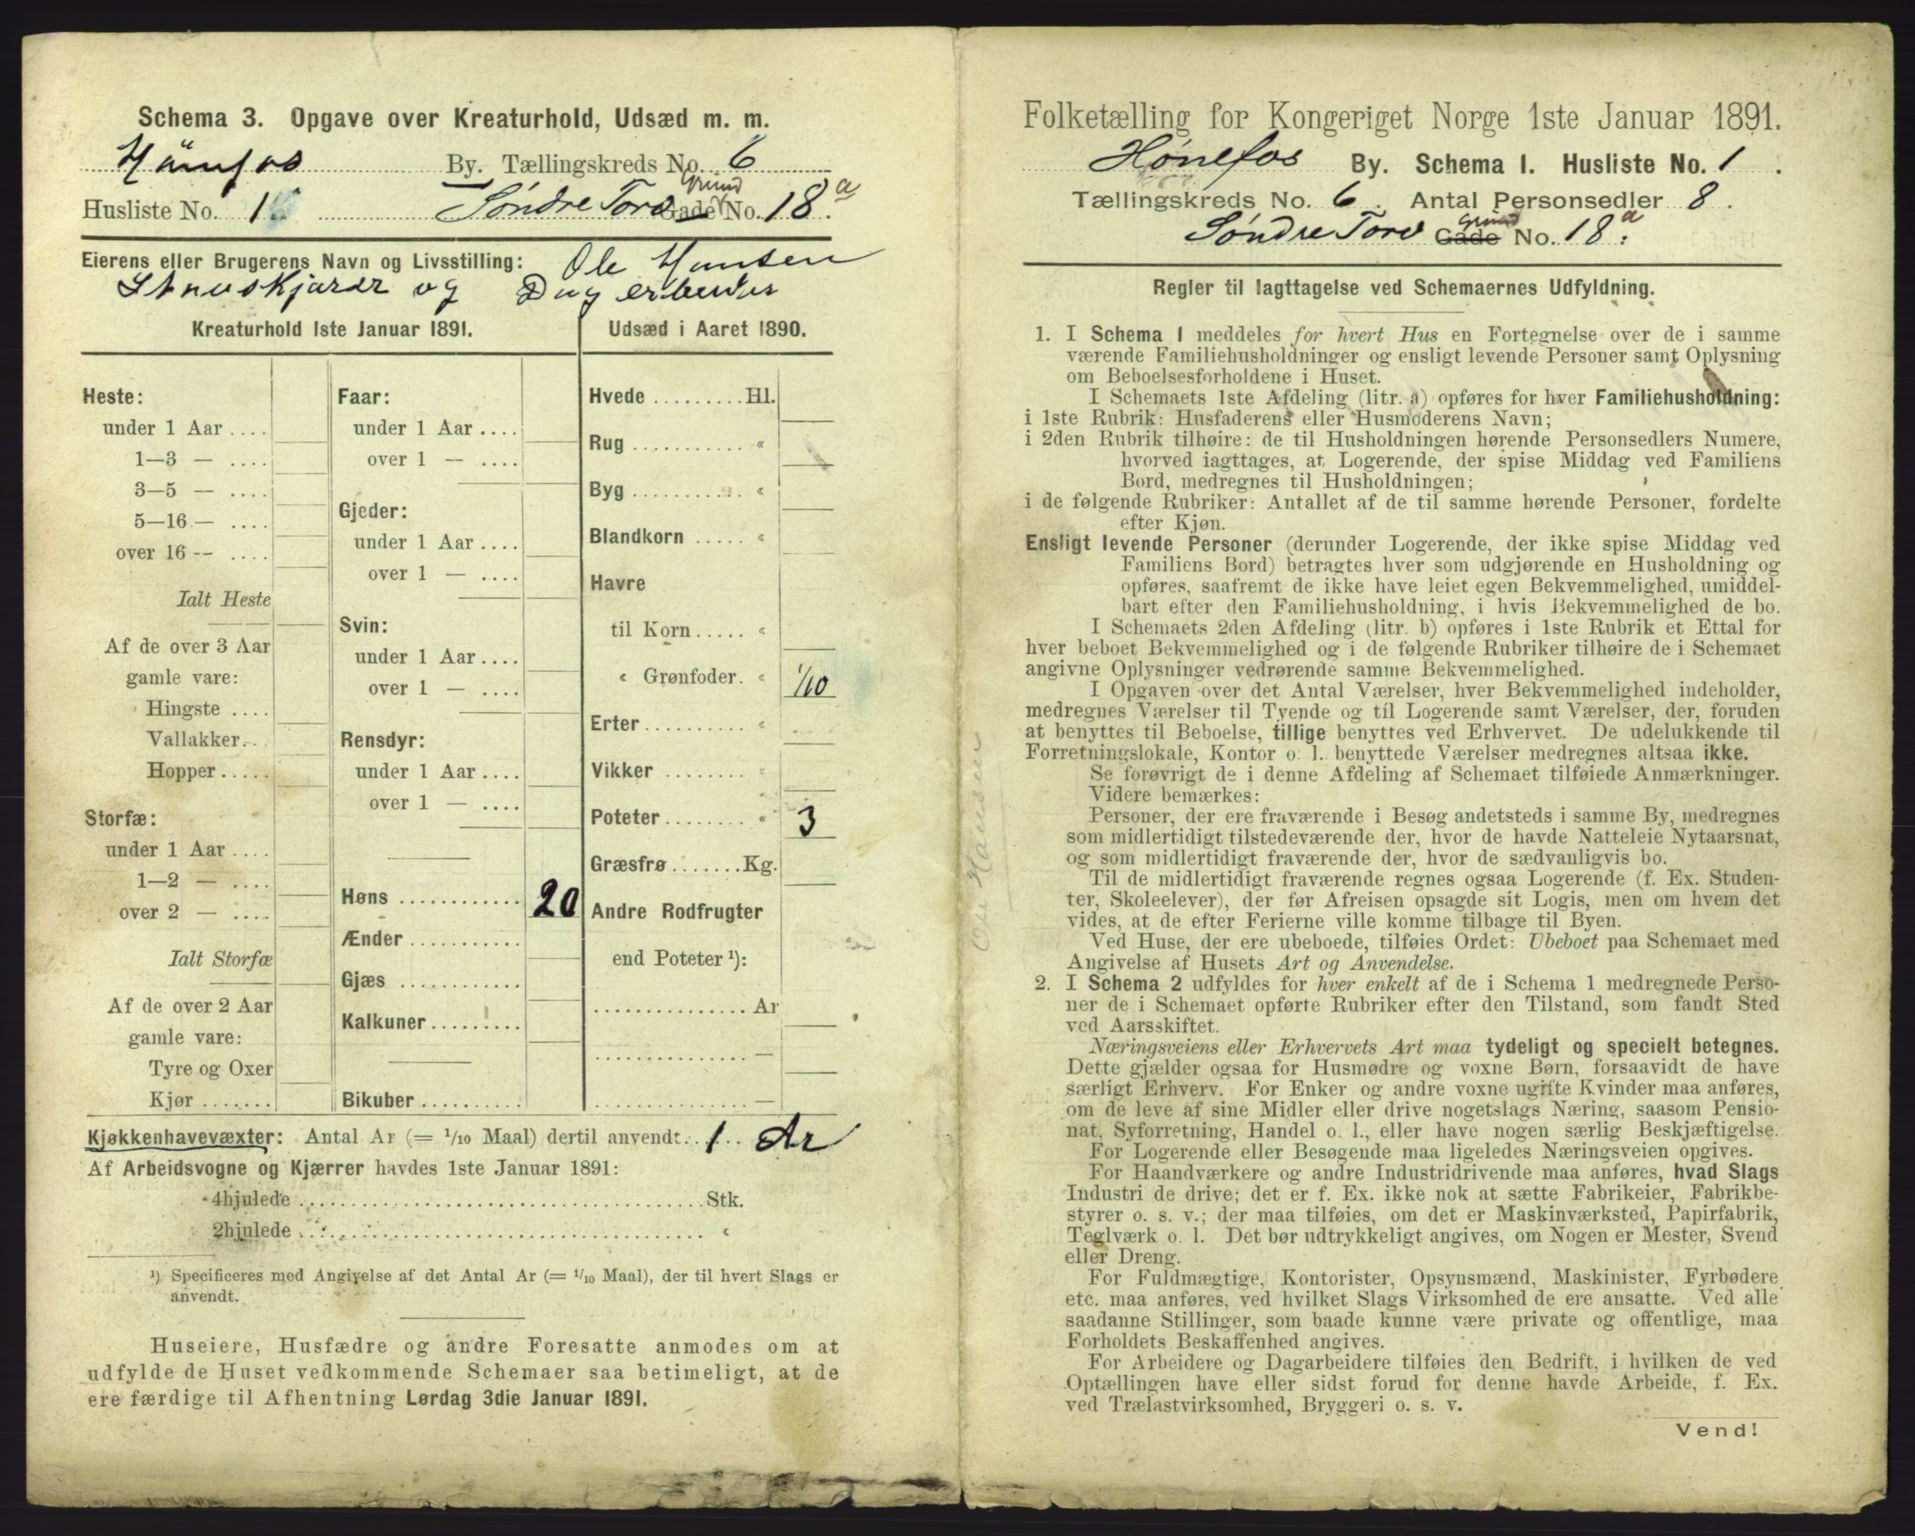 Schema 3. Opgave over Kreaturhold, Udsæd m. m.
Hönefos By. Tællingskreds No. 6
Husliste No. 1 Søndre Torv Gade Grund No. 18 a.
Eierens eller Brugerens Navn og Livsstilling: Ole Hansen
Stenskjærer og Dagarbeider
Kreaturhold 1ste Januar 1891.
Heste:
under 1 Aar ....
1—3 — ....
3—5 — ....
5—16 — ....
over 16 — ....
Ialt Heste
Af de over 3 Aar
gamle vare:
Hingste ....
Vallakker...
Hopper .....
Storfæ:
under 1 Aar ....
1—2 — ....
over 2 — ....
Ialt Storfæ
Af de over 2 Aar
gamle vare:
Tyre og Oxer
Kjør .......
Faar:
under 1 Aar ....
over 1 — ....
Gjeder:
under 1 Aar ....
over 1 — ....
Svin:
under 1 Aar ....
over 1 — ....
Rensdyr:
under 1 Aar ....
over 1 — ....
Høns ............ 20
Ænder ...........
Gjæs ............
Kalkuner .........
Bikuber ..........
Udsæd i Aaret 1890.
Hvede ......... Hl.
Rug ........... «
Byg ........... «
Blandkorn ..... «
Havre
til Korn ..... «
« Grønfoder. « 1/10
Erter .......... «
Vikker ......... «
Poteter ........ « 3
Græsfrø ....... Kg.
Andre Rodfrugter
end Poteter ¹):
............... Ar
............... —
............... —
Kjøkkenhavevæxter: Antal Ar (= 1/10 Maal) dertil anvendt. 1 Ar
Af Arbeidsvogne og Kjærrer havdes 1ste Januar 1891:
4hjulede ........................................ Stk.
2hjulede ........................................ «
¹) Specificeres med Angivelse af det Antal Ar (= 1/10 Maal), der til hvert Slags er
anvendt.
Huseiere, Husfædre og andre Foresatte anmodes om at
udfylde de Huset vedkommende Schemaer saa betimeligt, at de
ere færdige til Afhentning Lørdag 3die Januar 1891.
Ole Hansen
Folketælling for Kongeriget Norge 1ste Januar 1891.
Hønefos By. Schema I. Husliste No. 1.
Tællingskreds No. 6. Antal Personsedler 8.
Søndre Torv Gade Grund No. 18 a.
Regler til Iagttagelse ved Schemaernes Udfyldning.
1. I Schema 1 meddeles for hvert Hus en Fortegnelse over de i samme
værende Familiehusholdninger og ensligt levende Personer samt Oplysning
om Beboelsesforholdene i Huset.
I Schemaets 1ste Afdeling (litr. a) opføres for hver Familiehusholdning:
i 1ste Rubrik: Husfaderens eller Husmoderens Navn;
i 2den Rubrik tilhøire: de til Husholdningen hørende Personsedlers Numere,
hvorved iagttages, at Logerende, der spise Middag ved Familiens
Bord, medregnes til Husholdningen;
i de følgende Rubriker: Antallet af de til samme hørende Personer, fordelte
efter Kjøn.
Ensligt levende Personer (derunder Logerende, der ikke spise Middag ved
Familiens Bord) betragtes hver som udgjørende en Husholdning og
opføres, saafremt de ikke have leiet egen Bekvemmelighed, umiddel-
bart efter den Familiehusholdning, i hvis Bekvemmelighed de bo.
I Schemaets 2den Afdeling (litr. b) opføres i 1ste Rubrik et Ettal for
hver beboet Bekvemmelighed og i de følgende Rubriker tilhøire de i Schemaet
angivne Oplysninger vedrørende samme Bekvemmelighed.
I Opgaven over det Antal Værelser, hver Bekvemmelighed indeholder,
medregnes Værelser til Tyende og til Logerende samt Værelser, der, foruden
at benyttes til Beboelse, tillige benyttes ved Erhvervet. De udelukkende til
Forretningslokale, Kontor o. l. benyttede Værelser medregnes altsaa ikke.
Se forøvrigt de i denne Afdeling af Schemaet tilføiede Anmærkninger.
Videre bemærkes:
Personer, der ere fraværende i Besøg andetsteds i samme By, medregnes
som midlertidigt tilstedeværende der, hvor de havde Natteleie Nytaarsnat,
og som midlertidigt fraværende der, hvor de sædvanligvis bo.
Til de midlertidigt fraværende regnes ogsaa Logerende (f. Ex. Studen-
ter, Skoleelever), der før Afreisen opsagde sit Logis, men om hvem det
vides, at de efter Ferierne ville komme tilbage til Byen.
Ved Huse, der ere ubeboede, tilføies Ordet: Ubeboet paa Schemaet med
Angivelse af Husets Art og Anvendelse.
2. I Schema 2 udfyldes for hver enkelt af de i Schema 1 medregnede Perso-
ner de i Schemaet opførte Rubriker efter den Tilstand, som fandt Sted
ved Aarsskiftet.
Næringsveiens eller Erhvervets Art maa tydeligt og specielt betegnes.
Dette gjælder ogsaa for Husmødre og voxne Børn, forsaavidt de have
særligt Erhverv. For Enker og andre voxne ugifte Kvinder maa anføres,
om de leve af sine Midler eller drive nogetslags Næring, saasom Pensio-
nat, Syforretning, Handel o. l., eller have nogen særlig Beskjæftigelse.
For Logerende eller Besøgende maa ligeledes Næringsveien opgives.
For Haandværkere og andre Industridrivende maa anføres, hvad Slags
Industri de drive; det er f. Ex. ikke nok at sætte Fabrikeier, Fabrikbe-
styrer o. s. v.; der maa tilføies, om det er Maskinværksted, Papirfabrik,
Teglværk o. l. Det bør udtrykkeligt angives, om Nogen er Mester, Svend
eller Dreng.
For Fuldmægtige, Kontorister, Opsynsmænd, Maskinister, Fyrbødere
etc. maa anføres, ved hvilket Slags Virksomhed de ere ansatte. Ved alle
saadanne Stillinger, som baade kunne være private og offentlige, maa
Forholdets Beskaffenhed angives.
For Arbeidere og Dagarbeidere tilføies den Bedrift, i hvilken de ved
Optællingen have eller sidst forud for denne havde Arbeide, f. Ex.
ved Trælastvirksomhed, Bryggeri o. s. v.
Vend!